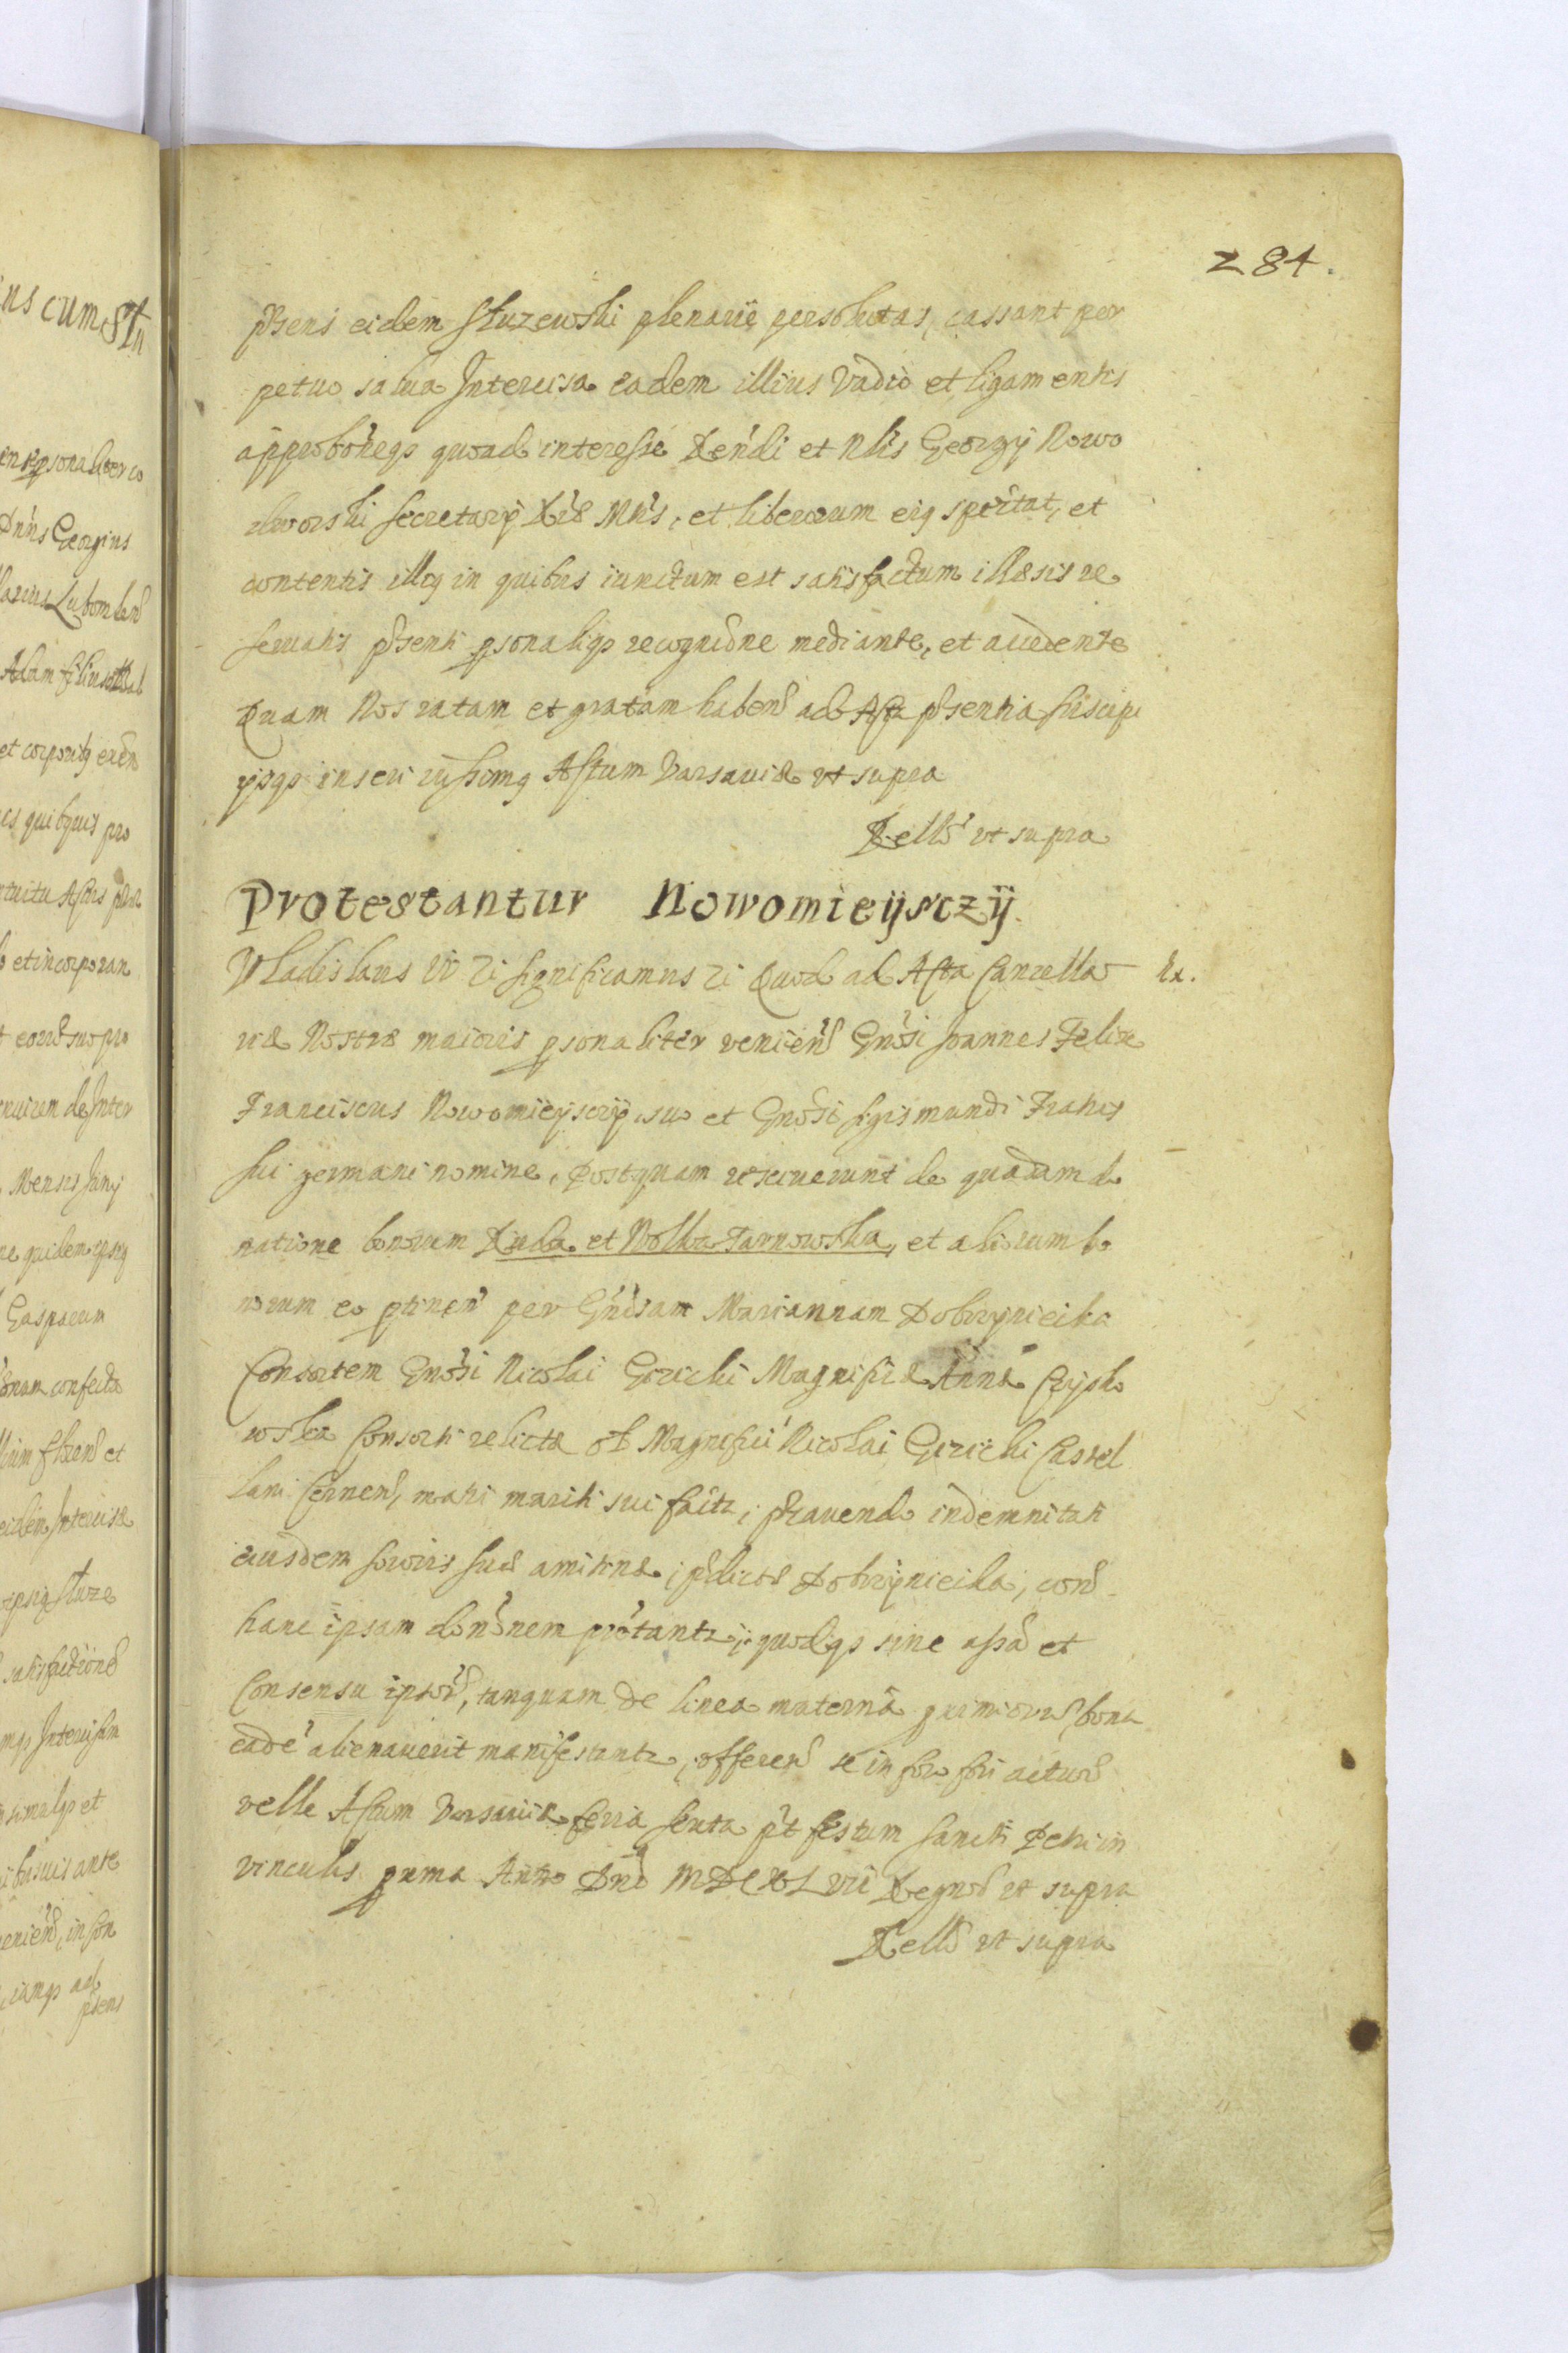 284.
pñsens eidem Słuzewski plenarie persolutas, cassant per
petuo salua Intercisa eadem illius Vadio et ligamentis
approbõneqз quoad interesse Rendi et Nlis Georgij Nowo
dworski Secretarij Rr̃æ Mtis, et liberorum eiq spectat, et
contentis illoq in quibus iunctum est satisfactum illæsis re
seruatis pñsenti psonaliqз recognidne mediante, et accedente
Quam Nos ratam et gratam habend ad Acta pñsentia suscipi
ijsqз inseri iussimq Actum Varsauiæ vt supra
Rello vt supra
Protestantur Nowomieijsczij
Vladislaus IV ti significamus ti Quod ad Acta Cancella Ex.
riæ Nostræ maioris psonaliter veniend Gnosi Joannes Felix
Franciscus Nowomieijscij, suo et Gnosi Sigismundi Fratris
sui germani nomine, Postquam resciuerunt de quadam do
natione bonorum Ruda et Wolka Tarnowska, et aliorum bo
norum eo ptinen per Gndsam Mariannam Dobrzynieika
Consortem Gnosi Nicolai Gizicki Magnificæ Annæ
wska Consorti relictæ ol Magnifici Nicolai Gizicki Castel
lani Cernen, matri mariti sui facta, præcauendo indemnitati
eiusdem sororis suæ amitinæ, pdictæ Dobrzynieika, cord
hanc ipsam donõnem prõtantr, quodqз sine assu et
Consensu ipsord, tanquam de linea materna bona
eade alienauerit manifestantr, offerend se in foro fori acturd
velle Actum Varsauiæ feria sexta pt festum Sancti Petri in
vinculis pxima Anno Dnõ MDCXLVII Regnod vt supra
Rello vt supra
ius cum Stu
Dnns Georgius
et corporitq eadem
es quibquis pro
rtuitu Actis
o et incorporan
Mensis Junij
ne quidem ipsiq
Gasparum
onam confecta
eidem Intercisæ
satisfactiond
maqз Intercisam
ibsuis ante
veniend, in son
ciamqз ad
pñsens